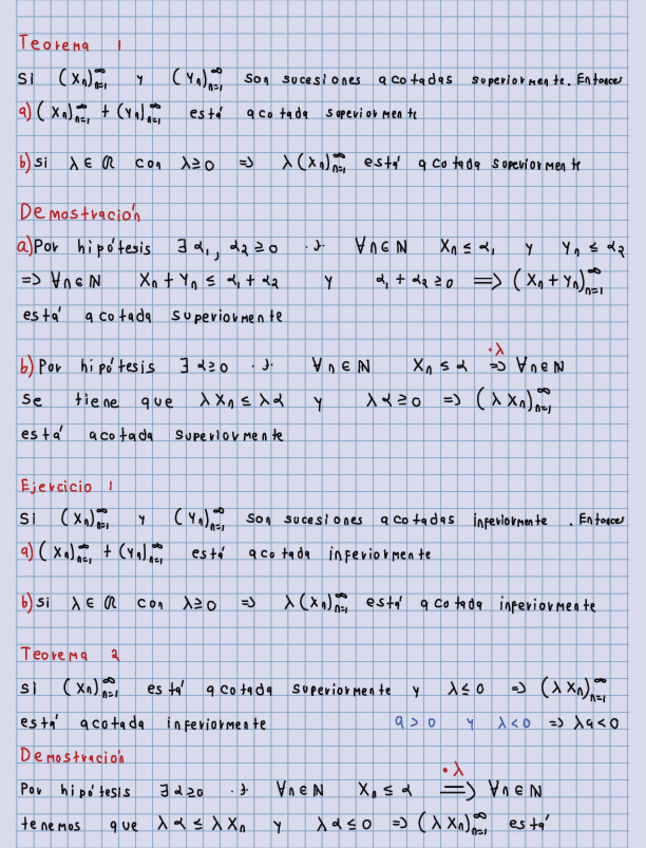 Teorema 1
Si (Xₙ)ₙ₌₁^∞ y (Yₙ)ₙ₌₁^∞ son sucesiones acotadas superiormente. Entonces
a) (Xₙ)ₙ₌₁^∞ + (Yₙ)ₙ₌₁^∞ está acotada superiormente
b) si λ ∈ ℝ con λ ≥ 0 => λ(Xₙ)ₙ₌₁^∞ está acotada superiormente
Demostración
a) Por hipótesis ∃ α₁, α₂ ≥ 0 ·∋· ∀n∈ℕ Xₙ ≤ α₁ y Yₙ ≤ α₂
=> ∀n∈ℕ Xₙ + Yₙ ≤ α₁ + α₂ y α₁ + α₂ ≥ 0 => (Xₙ + Yₙ)ₙ₌₁^∞
está acotada superiormente
·λ
b) Por hipótesis ∃ α ≥ 0 ·∋· ∀n∈ℕ Xₙ ≤ α => ∀n∈ℕ
se tiene que λXₙ ≤ λα y λα ≥ 0 => (λXₙ)ₙ₌₁^∞
está acotada superiormente
Ejercicio 1
Si (Xₙ)ₙ₌₁^∞ y (Yₙ)ₙ₌₁^∞ son sucesiones acotadas inferiormente. Entonces
a) (Xₙ)ₙ₌₁^∞ + (Yₙ)ₙ₌₁^∞ está acotada inferiormente
b) si λ ∈ ℝ con λ ≥ 0 => λ(Xₙ)ₙ₌₁^∞ está acotada inferiormente
Teorema 2
Si (Xₙ)ₙ₌₁^∞ está acotada superiormente y λ ≤ 0 => (λXₙ)ₙ₌₁^∞
está acotada inferiormente a > 0 y λ < 0 => λa < 0
Demostración
·λ
Por hipótesis ∃ α ≥ 0 ·∋· ∀n∈ℕ Xₙ ≤ α => ∀n∈ℕ
tenemos que λα ≤ λXₙ y λα ≤ 0 => (λXₙ)ₙ₌₁^∞ está